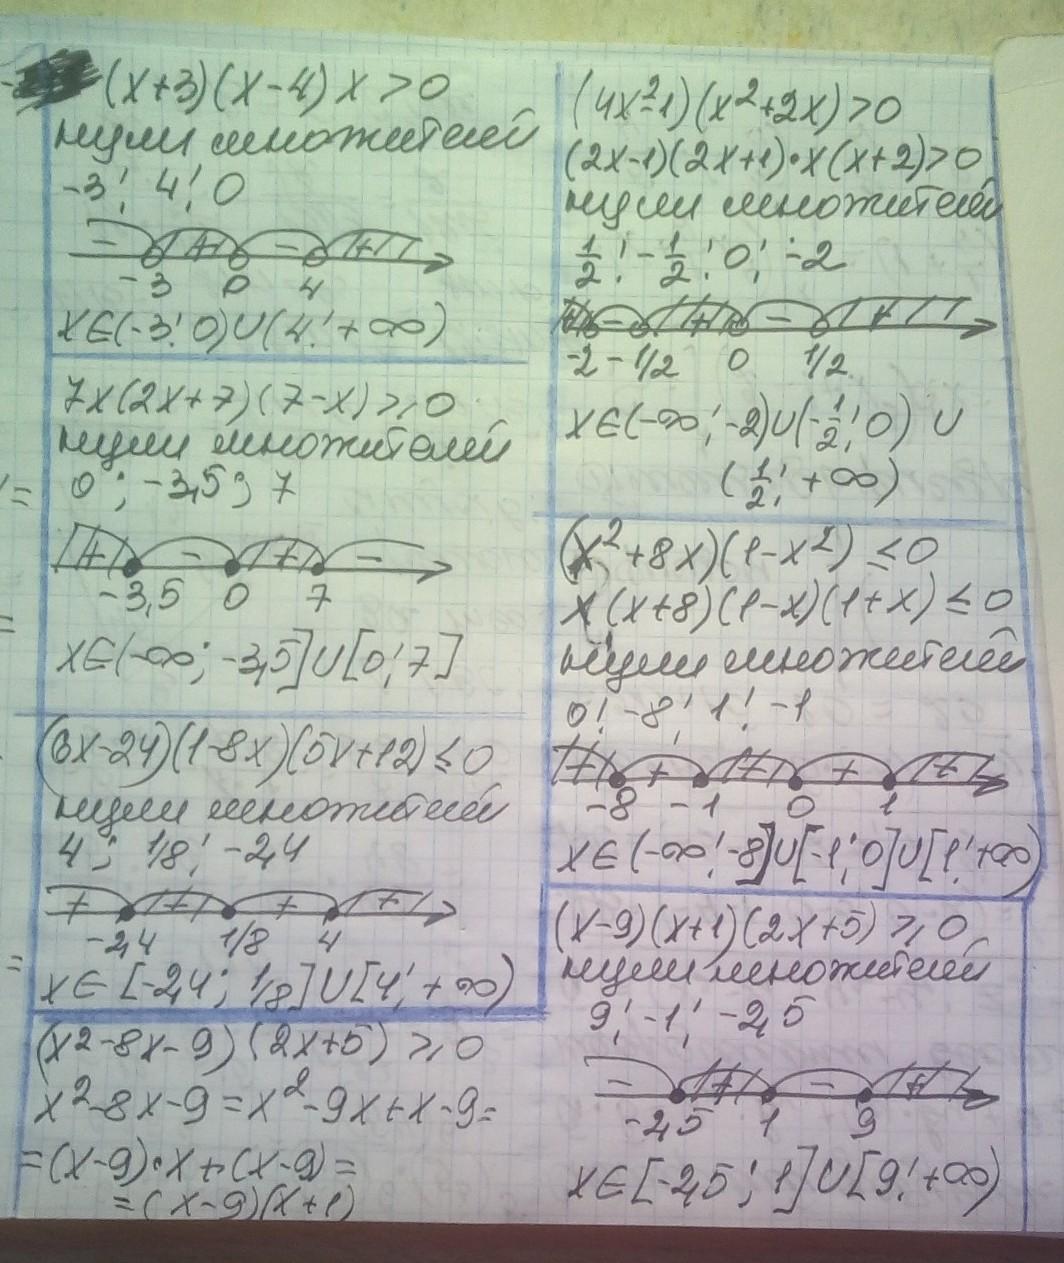 (x+3)(x-4)x>0
нули множителей
-3; 4; 0
- + - +
-3 0 4
x∈(-3; 0)∪(4; +∞)
7x(2x+7)(7-x)≥0
нули множителей
0; -3,5; 7
+ - + -
-3,5 0 7
x∈(-∞; -3,5]∪[0; 7]
(6x-24)(1-8x)(5x+12)≤0
нули множителей
4; 1/8; -2,4
-2,4 1/8 4
x∈[-2,4; 1/8]∪[4; +∞)
(x²-8x-9)(2x+5)≥0
x²-8x-9=x²-9x+x-9=
=(x-9)·x+(x-9)=
=(x-9)(x+1)
(4x²-1)(x²+2x)>0
(2x-1)(2x+1)·x(x+2)>0
нули множителей
1/2; -1/2; 0; -2
+ - + - +
-2 -1/2 0 1/2
x∈(-∞; -2)∪(-1/2; 0) ∪
(1/2; +∞)
(x²+8x)(1-x²)≤0
x(x+8)(1-x)(1+x)≤0
нули множителей
0; -8; 1; -1
-8 -1 0 1
x∈(-∞; -8]∪[-1; 0]∪[1; +∞)
(x-9)(x+1)(2x+5)≥0
нули множителей
9; -1; -2,5
- + - +
-2,5 1 9
x∈[-2,5; 1]∪[9; +∞)